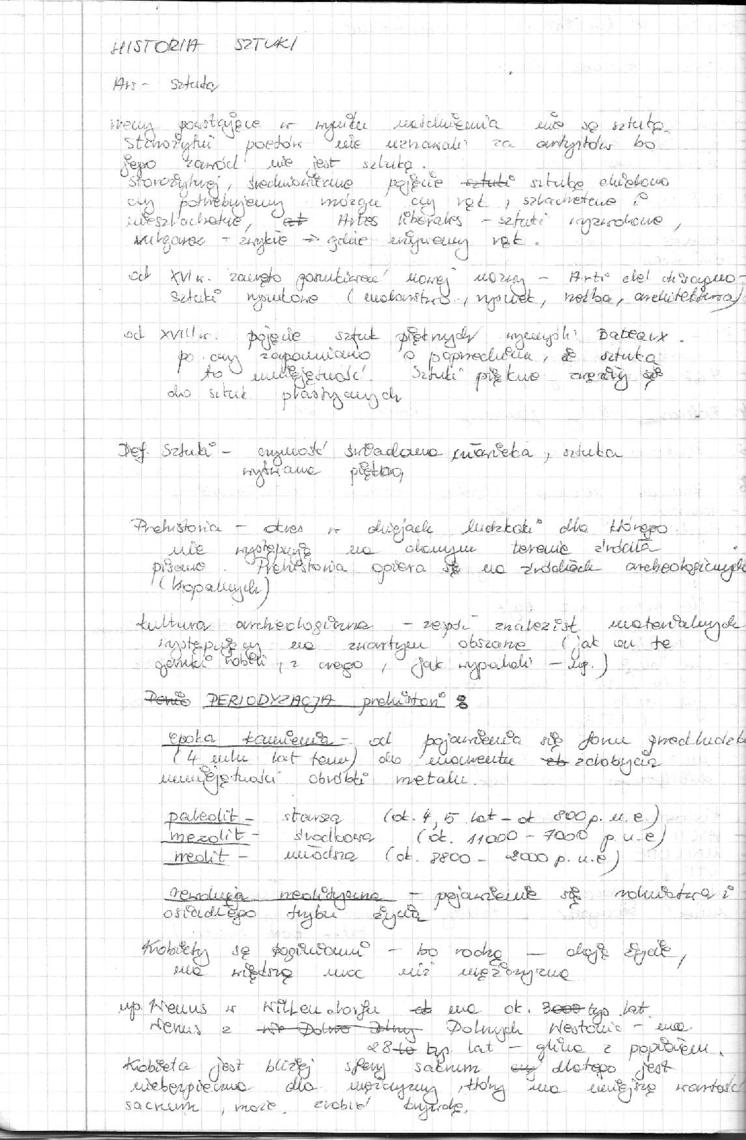 HISTORIA SZTUKI
Ars - Sztuka
rzeczy powstające w wyniku natchnienia nie są sztuką.
Starożytni poetów nie uznawali za artystów bo
jego zawód nie jest sztuką.
starożytnej, średniowieczne pojęcie sztuki sztukę dzielono
czy potrzebujemy mózgu czy rąk, szlachetne i
nieszlachetne, Artes liberales - sztuki wyzwolone,
vulgares - zwykłe → gdzie używamy rąk.
od XVI w. zaczęto poszukiwać nowej nazwy - Arti del disegno -
sztuki rysunkowe (malarstwo, rysunek, rzeźba, architektura)
od XVIII w. pojęcie sztuk pięknych wymyślił Bateaux.
po czy zapomniano o poprzednim, że sztuka
to umiejętność. Sztuki piękne zwęziły się
do sztuk plastycznych
Def. Sztuki - czynność świadoma człowieka, sztuka
wytwarza piękno,
Prehistoria - okres w dziejach ludzkości dla którego
nie występują na danym terenie źródła
pisane. Prehistoria opiera się na źródłach archeologicznych
(kopalnych)
kultura archeologiczna - zespół znalezisk materialnych
występujący na zwartym obszarze (jak oni te
garnki robili, z czego, jak wypalali - np.)
PERIODYZACJA prehistorii :
epoka kamienia - od pojawienia się form przedludzkich
(4 mln lat temu) do momentu zdobycia
umiejętności obróbki metalu.
paleolit - starsza (ok. 4,5 lat - ok 800 p.n.e)
mezolit - środkowa (ok. 11000 - 7000 p.n.e)
neolit - młodsza (ok. 8800 - 2000 p.n.e)
rewolucja neolityczna - pojawienie się rolnictwa i
osiadłego trybu życia
Kobiety są boginiami - bo rodzą - dają życie,
ma większą moc niż mężczyzna
np. Wenus w Willendorfu ma ok. 3000 tys lat.
Wenus z Dolnych Westonic - ma
28 tys lat - glina z popiołem.
Kobieta jest bliżej sfery sacrum dlatego jest
niebezpieczna dla mężczyzny, który ma mniejszą wartość
sacrum, może zrobić krzywdę.